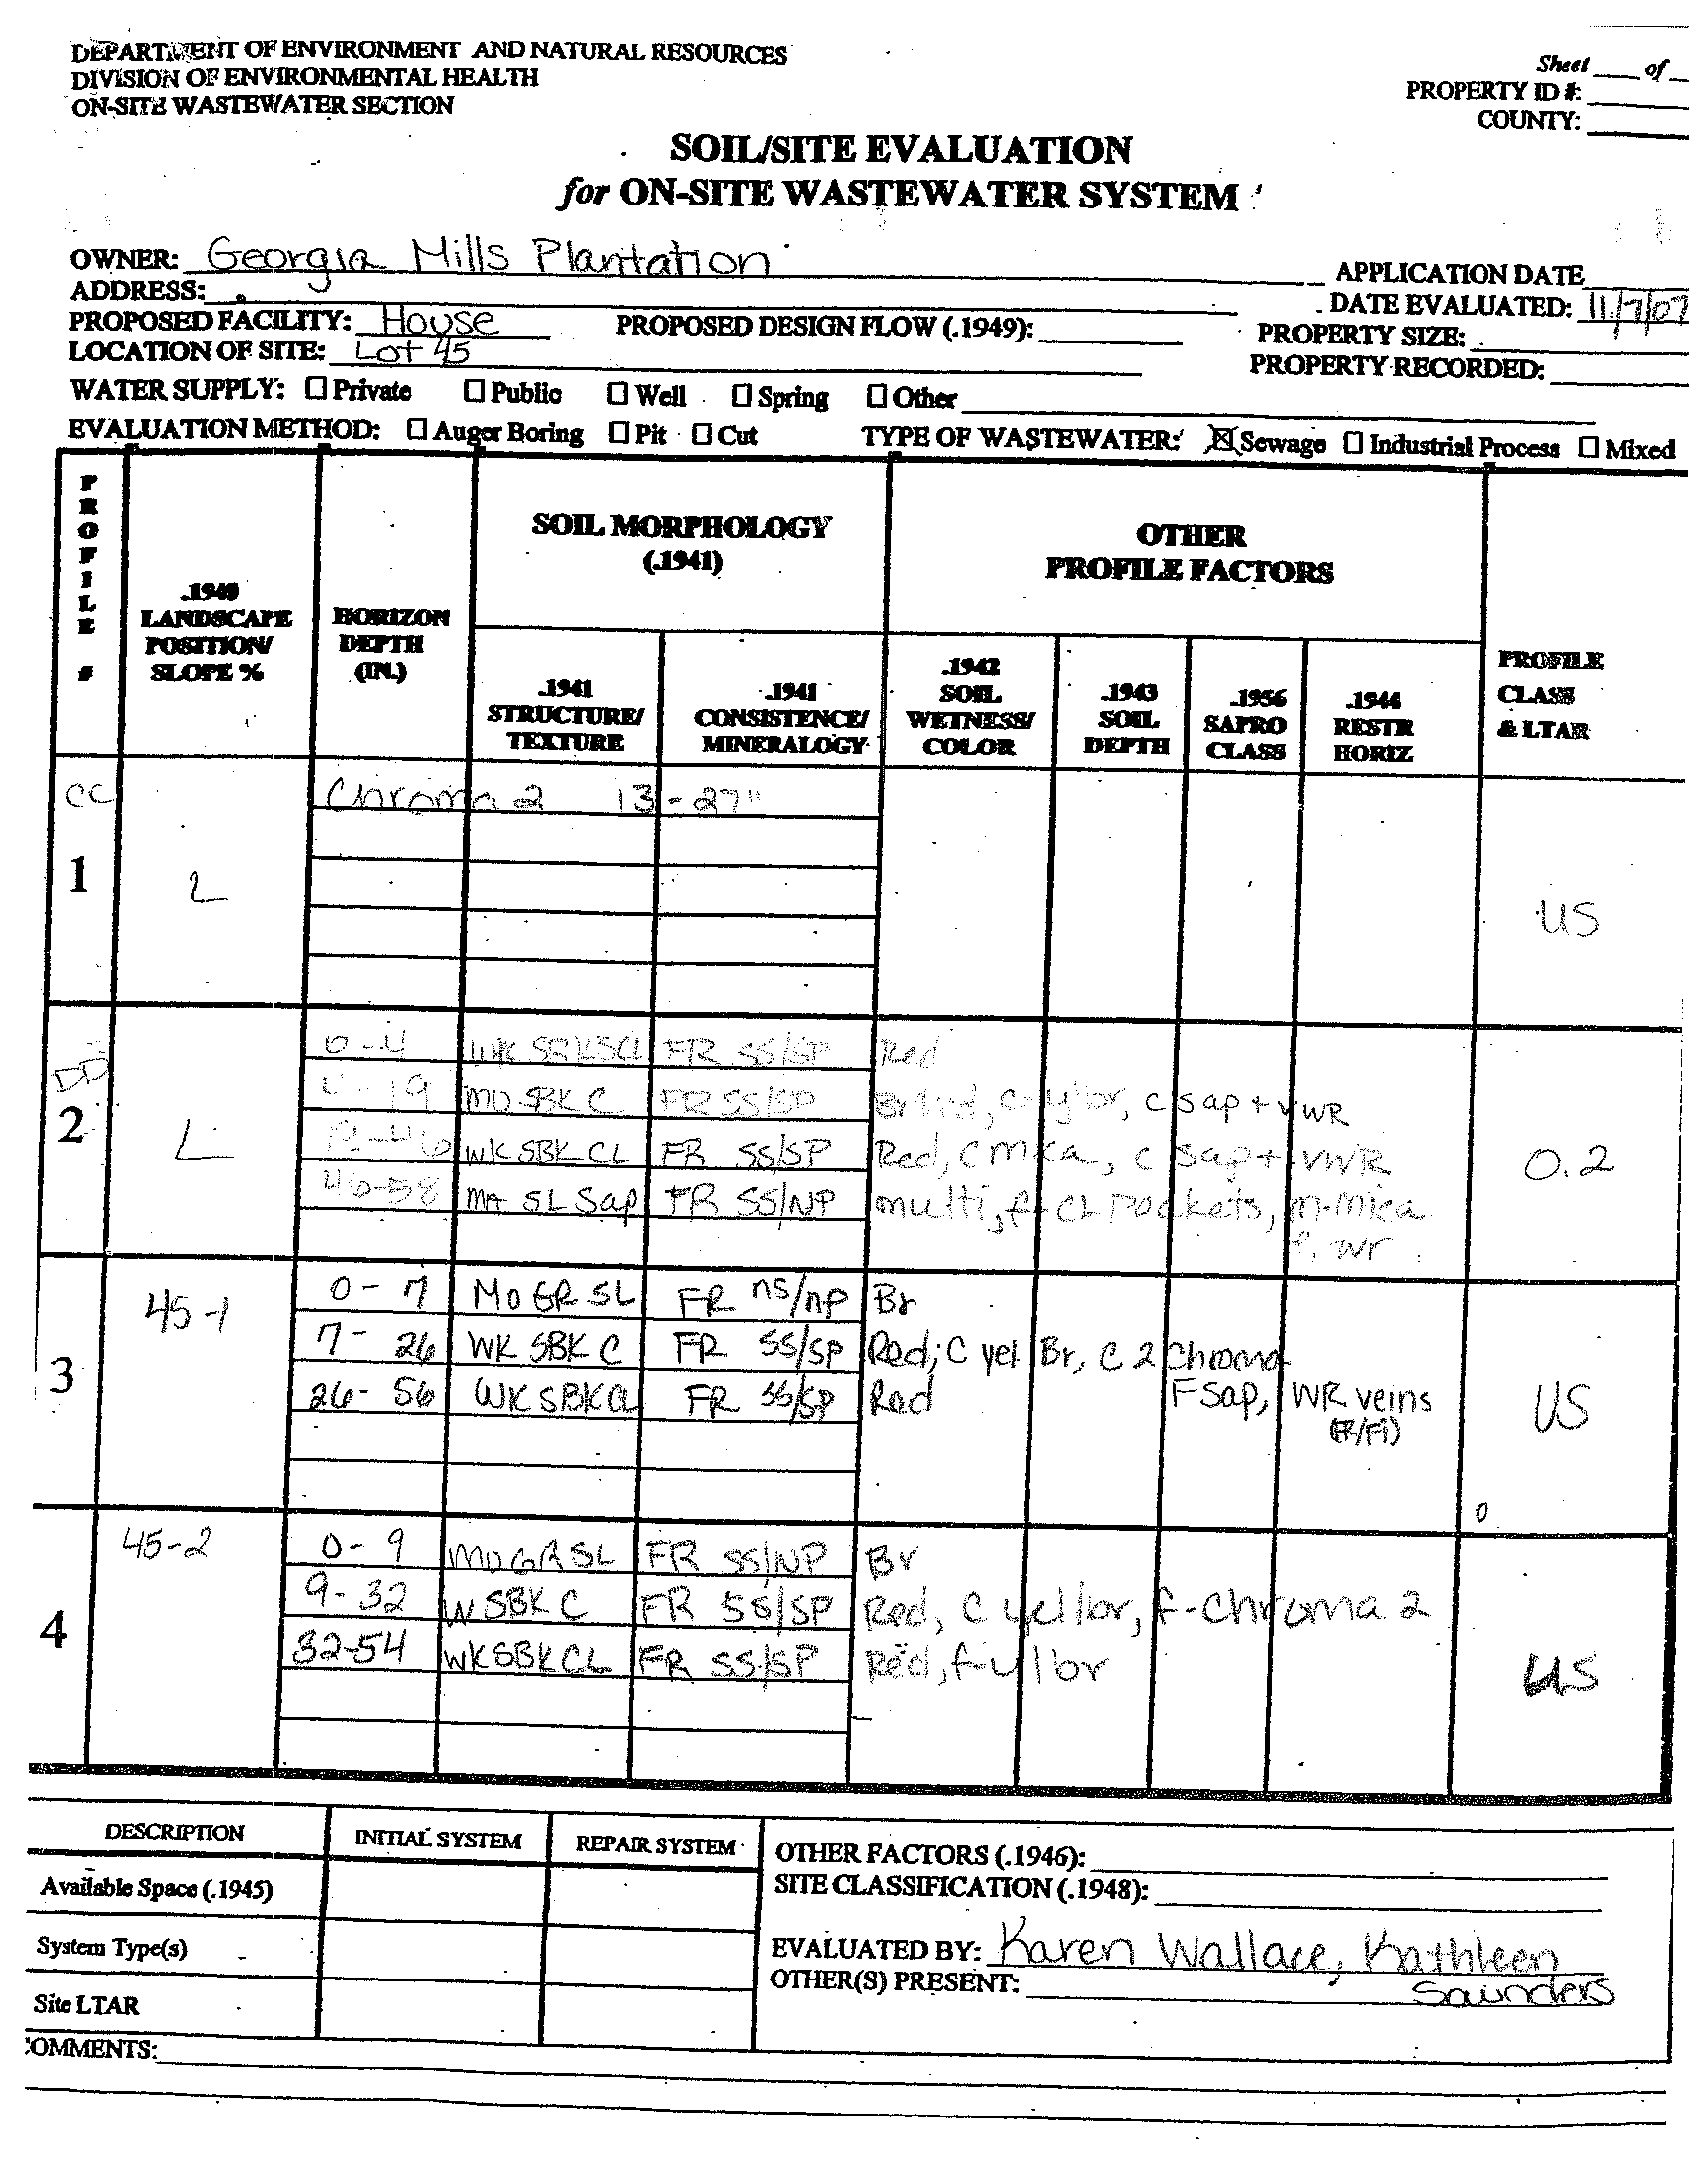 DEPARTMENT OF ENVIRONMENT AND NATURAL RESOURCES
DIVISION OF ENVIRONMENTAL HEALTH
ON-SITE WASTEWATER SECTION
Sheet ___ of _
PROPERTY ID #:
COUNTY:
SOIL/SITE EVALUATION
for ON-SITE WASTEWATER SYSTEM
OWNER: Georgia Mills Plantation
ADDRESS:
APPLICATION DATE
DATE EVALUATED: 11/7/07
PROPOSED FACILITY: House PROPOSED DESIGN FLOW (.1949):
PROPERTY SIZE:
LOCATION OF SITE: Lot 45
PROPERTY RECORDED:
WATER SUPPLY: ☐ Private ☐ Public ☐ Well ☐ Spring ☐ Other
EVALUATION METHOD: ☐ Auger Boring ☐ Pit ☐ Cut TYPE OF WASTEWATER: ☒ Sewage ☐ Industrial Process ☐ Mixed
PROFILE #
.1940 LANDSCAPE POSITION/ SLOPE %
HORIZON DEPTH (IN.)
SOIL MORPHOLOGY (.1941)
.1941 STRUCTURE/ TEXTURE
.1941 CONSISTENCE/ MINERALOGY
OTHER PROFILE FACTORS
.1942 SOIL WETNESS/ COLOR
.1943 SOIL DEPTH
.1956 SAPRO CLASS
.1944 RESTR HORIZ
PROFILE CLASS & LTAR
CC Chroma 2 13-27"
1 L US
DD
2 L 0.2
0-4 WK SBK SCL FR SS/SP Red
4-19 MO SBK C FR SS/SP c yl br, c sap + vWR
WK SBK CL FR SS/SP Red, C mica, c sap + vWR
46-58 MA SL Sap FR SS/NP multi, f-CL Pockets, m-mica
f. wr
3 45-1 US
0-7 MO GR SL FR ns/np Br
7-26 WK SBK C FR SS/SP Red; C yel Br, C 2 Chroma
26-56 WK SBK CL FR SS/SP Red F Sap, WR veins
(FR/Fi)
0
4 45-2 US
0-9 MO GR SL FR SS/NP Br
9-32 W SBK C FR SS/SP Red, C yel/br, f-chroma 2
32-54 WK SBK CL FR SS/SP Red, f-yl br
DESCRIPTION INITIAL SYSTEM REPAIR SYSTEM
Available Space (.1945)
System Type(s)
Site LTAR
OTHER FACTORS (.1946):
SITE CLASSIFICATION (.1948):
EVALUATED BY: Karen Wallace, Kathleen
Saunders
OTHER(S) PRESENT:
COMMENTS: